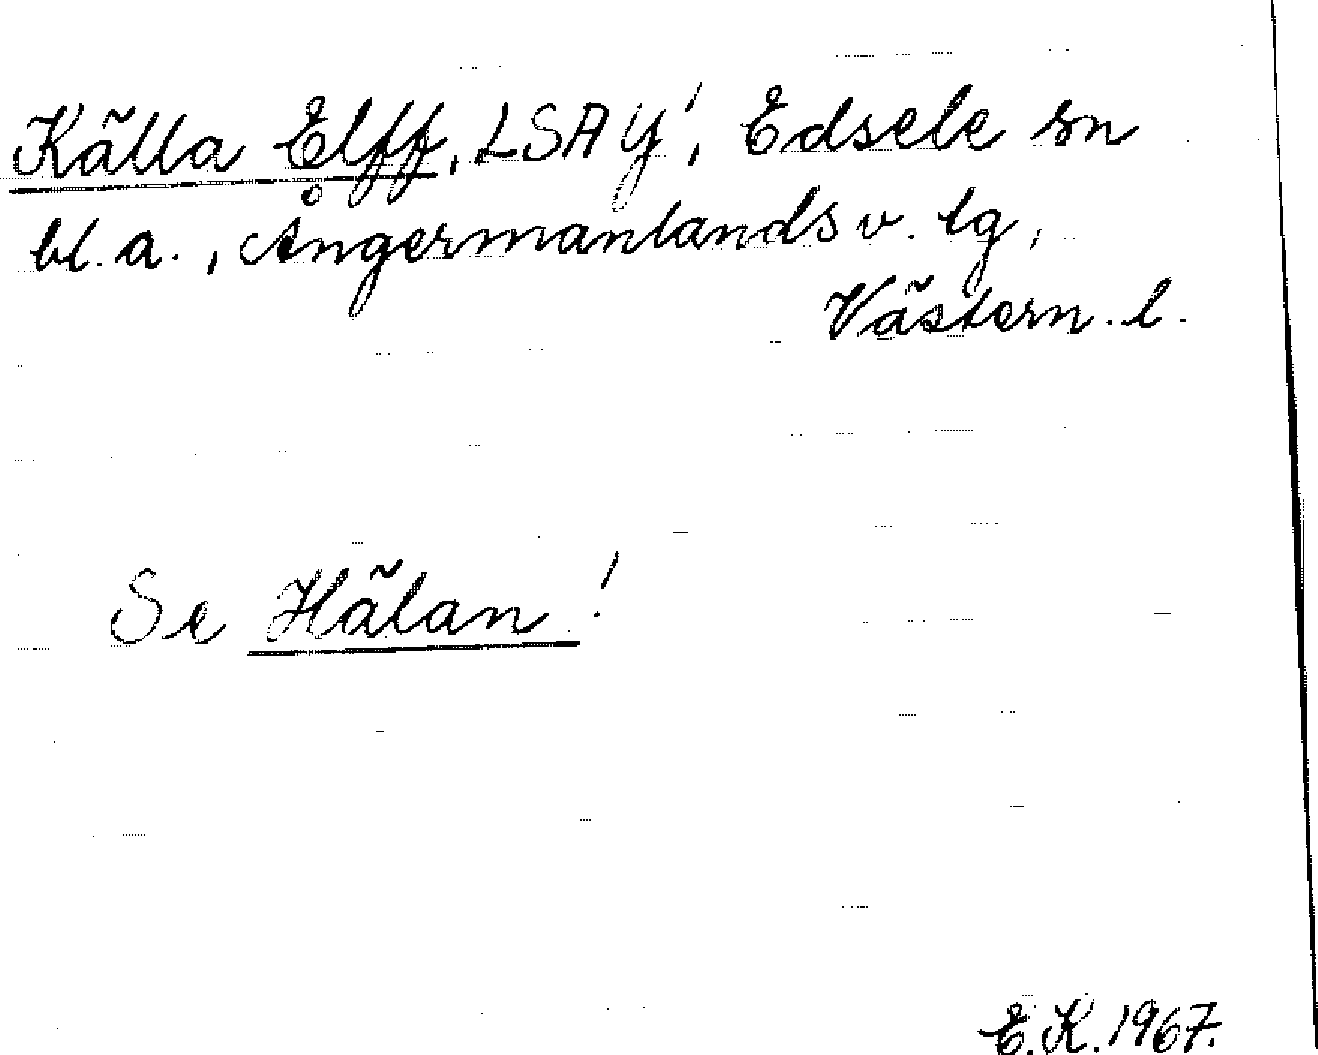 Källa Elff, LSA Y', Edsele sn
bl.a., Ångermanlands v. lg,
Västern. l.
Se Hälan!
E.K. 1967.